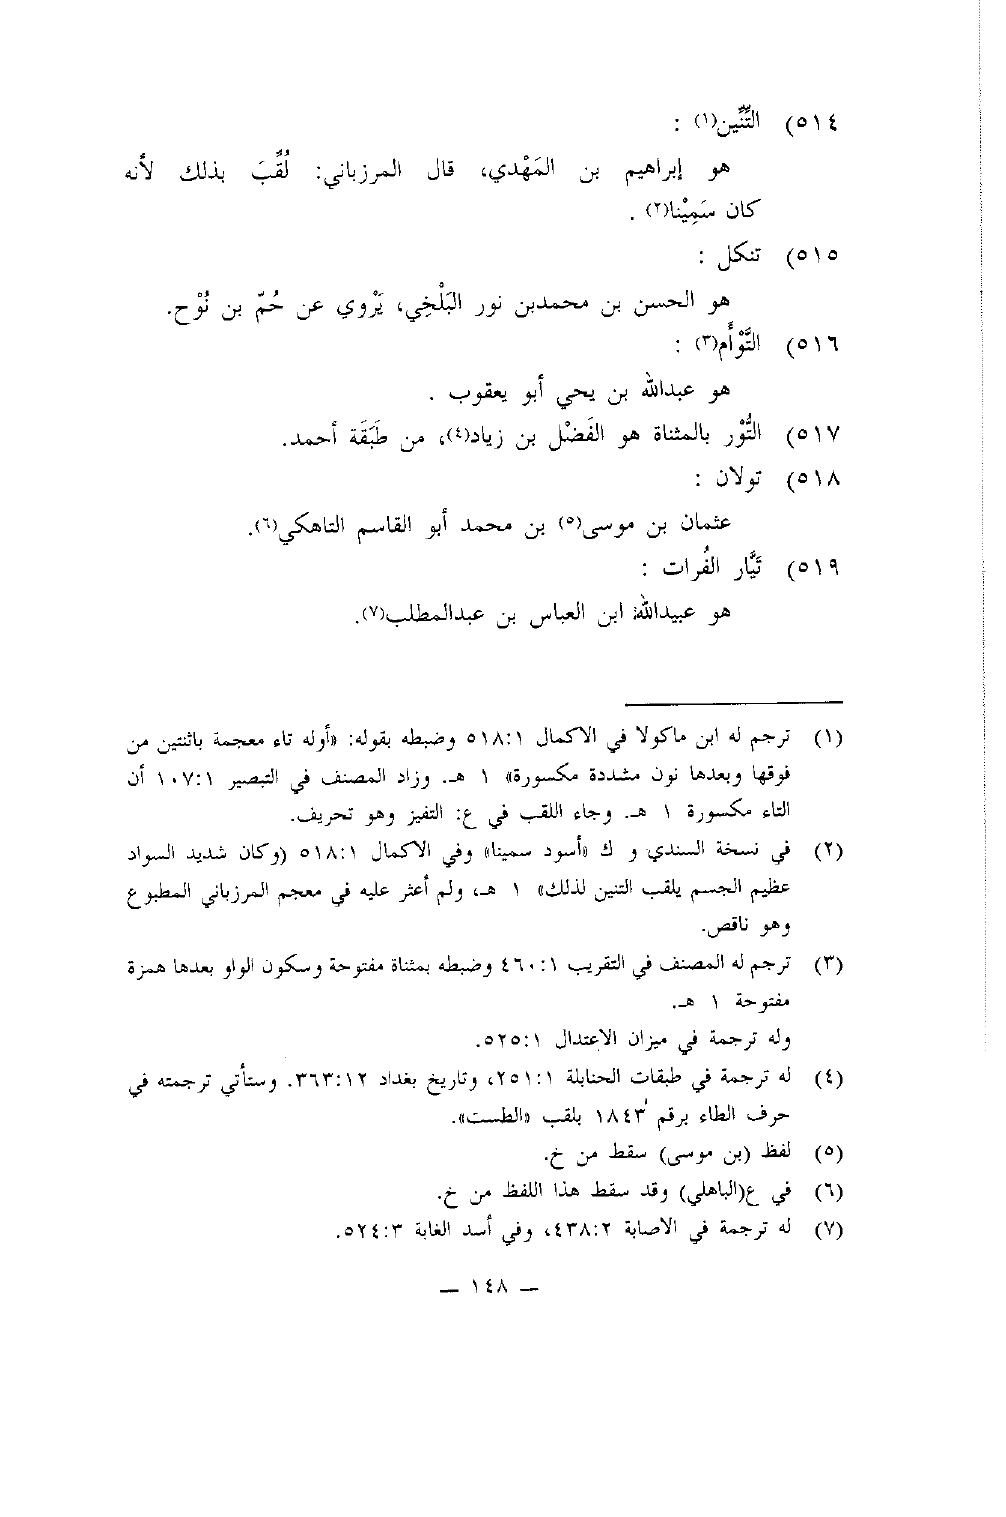 ٥١٤) التِّنِّين(١) :
هو إبراهيم بن المَهْدي، قال المرزباني: لُقِّبَ بذلك لأنه
كان سَمِيْنا(٢) .
٥١٥) تنكل :
هو الحسن بن محمدبن نور البَلْخِي، يَرْوي عن حُمّ بن نُوْح.
٥١٦) التَّوْأَم(٣) :
هو عبدالله بن يحي أبو يعقوب .
٥١٧) التُّوْر بالمثناة هو الفَضْل بن زياد(٤)، من طَبَقَة أحمد.
٥١٨) تولان :
عثمان بن موسى(٥) بن محمد أبو القاسم التاهكي(٦).
٥١٩) تَيَّار الفُرات :
هو عبيدالله ابن العباس بن عبدالمطلب(٧).
(١) ترجم له ابن ماكولا في الاكمال ٥١٨:١ وضبطه بقوله: «أوله تاء معجمة باثنتين من
فوقها وبعدها نون مشددة مكسورة» ١ هـ. وزاد المصنف في التبصير ١٠٧:١ أن
التاء مكسورة ١ هـ. وجاء اللقب في ع: التفيز وهو تحريف.
(٢) في نسخة السندي و ك «أسود سمينا» وفي الاكمال ٥١٨:١ (وكان شديد السواد
عظيم الجسم يلقب التنين لذلك» ١ هـ، ولم أعثر عليه في معجم المرزباني المطبوع
وهو ناقص.
(٣) ترجم له المصنف في التقريب ٤٦٠:١ وضبطه بمثناة مفتوحة وسكون الواو بعدها همزة
مفتوحة ١ هـ.
وله ترجمة في ميزان الاعتدال ٥٢٥:١.
(٤) له ترجمة في طبقات الحنابلة ٢٥١:١، وتاريخ بغداد ٣٦٣:١٢. وستأتي ترجمته في
حرف الطاء برقم ١٨٤٣ بلقب «الطست».
(٥) لفظ (بن موسى) سقط من خ.
(٦) في ع(الباهلي) وقد سقط هذا اللفظ من خ.
(٧) له ترجمة في الاصابة ٤٣٨:٢، وفي أسد الغابة ٥٢٤:٣.
— ١٤٨ —